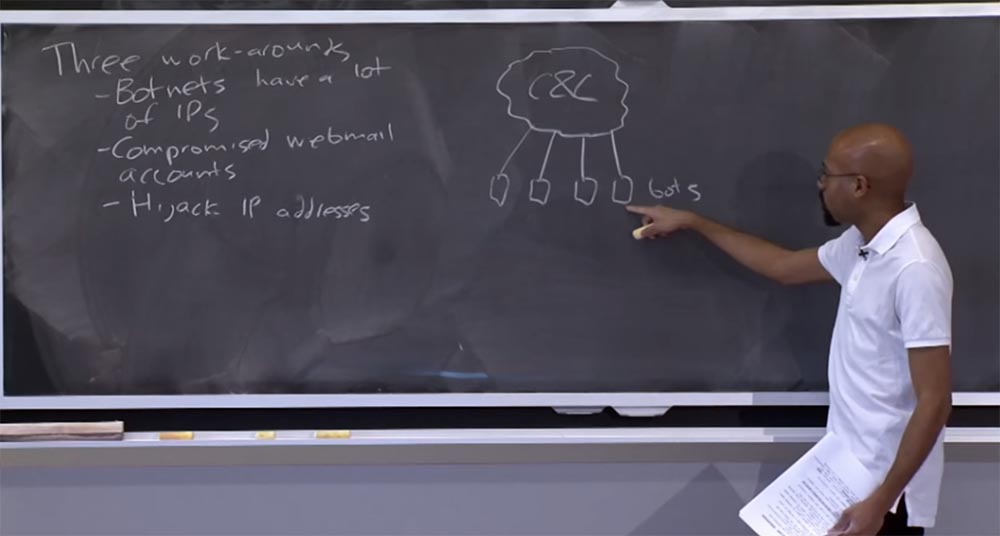 Three work-arounds
- Botnets have a lot
of IPs
- Compromised webmail
accounts
- Hijack IP addresses
C&C
bots